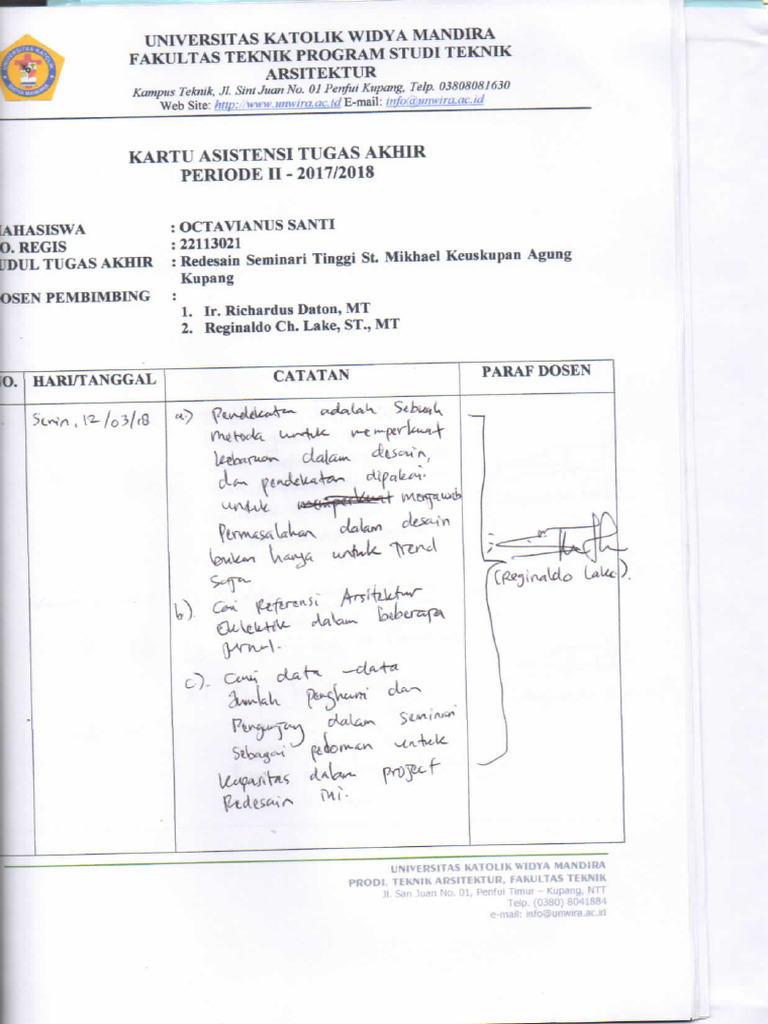 UNIVERSITAS KATOLIK WIDYA MANDIRA
FAKULTAS TEKNIK PROGRAM STUDI TEKNIK
ARSITEKTUR
Kampus Teknik, Jl. Sint Juan No. 01 Penfui Kupang, Telp. 03808081630
Web Site: http://www.unwira.ac.id E-mail: info@unwira.ac.id
KARTU ASISTENSI TUGAS AKHIR
PERIODE II - 2017/2018
MAHASISWA : OCTAVIANUS SANTI
O. REGIS : 22113021
UDUL TUGAS AKHIR : Redesain Seminari Tinggi St. Mikhael Keuskupan Agung
Kupang
OSEN PEMBIMBING :
1. Ir. Richardus Daton, MT
2. Reginaldo Ch. Lake, ST., MT
O. HARI/TANGGAL CATATAN PARAF DOSEN
Senin, 12/03/18 a.) Pendekatan adalah Sebuah
metoda untuk memperkuat
kebaruan dalam desain,
dan pendekatan dipakai
untuk memperkuat menjawab
Permasalahan dalam desain
bukan hanya untuk Trend
saja
(Reginaldo Lake).
b). Cari Referensi Arsitektur
Eklektik dalam beberapa
jurnal.
c). Cari data-data
Jumlah penghuni dan
Pengunjung dalam Seminari
Sebagai pedoman untuk
kapasitas dalam project
Redesain ini.
UNIVERSITAS KATOLIK WIDYA MANDIRA
PRODI. TEKNIK ARSITEKTUR, FAKULTAS TEKNIK
Jl. San Juan No. 01, Penfui Timur – Kupang, NTT
Telp. (0380) 8041884
e-mail: info@unwira.ac.id